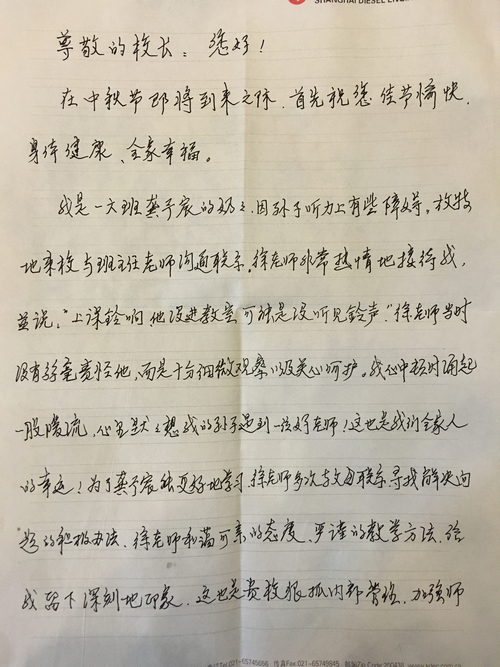 SHANGHAI DIESEL ENG
尊敬的校长：您好！
在中秋节即将到来之际，首先祝您佳节愉快，
身体健康、全家幸福。
我是一六班龚予宸的奶々，因孙子听力上有些障碍，故特
地来校与班主任老师沟通联系。徐老师非常热情地接待我，
并说，“上课铃响他没进教室可能是没听见铃声。”徐老师当时
没有丝毫责怪他，而是十分细微观察以及关心呵护。我心中顿时涌起
一股暖流，心里默々想我的孙子遇到一位好老师！这也是我们全家人
的幸运！为了龚予宸能更好地学习，徐老师多次与父母联系寻找解决问
题的积极办法，徐老师和蔼可亲的态度、严谨的教学方法，给
我留下深刻地印象，这也是贵校狠抓内部营络，加强师
Tel:021-65745656 传真Fax:021-65749845 邮编Zip Code:200438